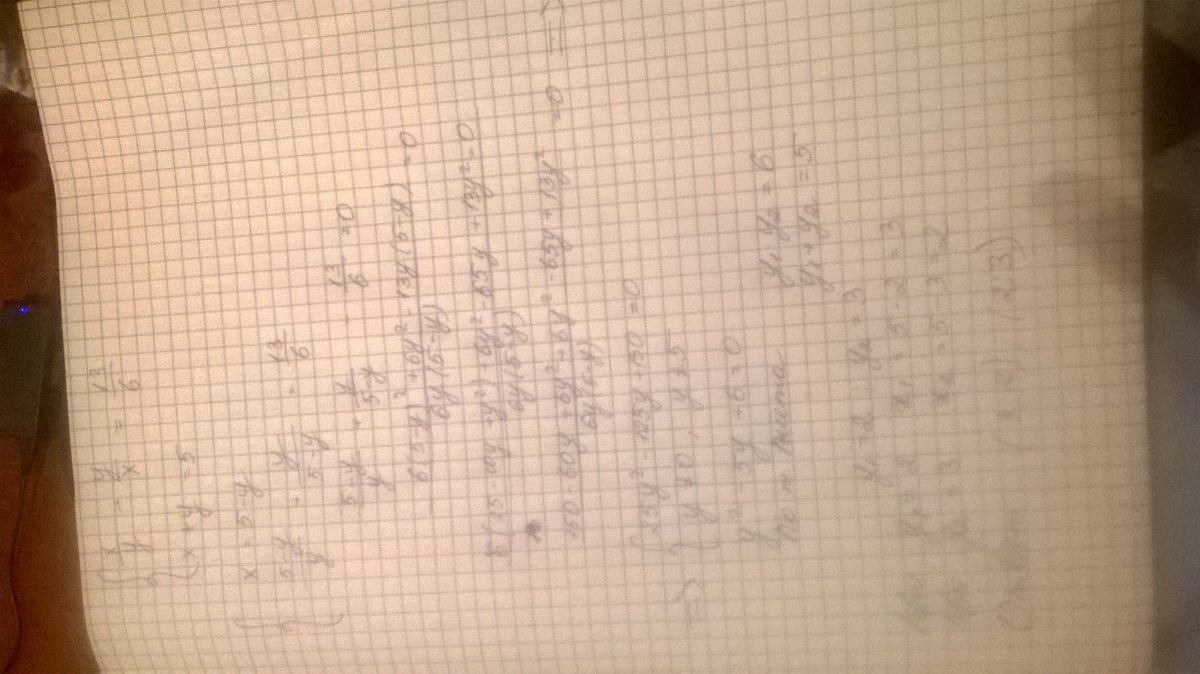 { x/y + y/x = 13/6
{ x + y = 5
{ x = 5 - y
{ 5-y/y + y/5-y = 13/6
5-y/y + y/5-y - 13/6 = 0
6(5-y)² + 6y² - 13y(5-y) / 6y(5-y) = 0
6(25 - 10y + y²) + 6y² - 65y + 13y² / 6y(5-y) = 0
150 - 60y + 6y² + 6y² - 65y + 13y² / 6y(5-y) = 0 =>
=> { 25y² - 125y + 150 = 0
{ y ≠ 0, y ≠ 5
y² - 5y + 6 = 0
по т. Виета y₁ · y₂ = 6
y₁ + y₂ = 5
y₁ = 2 y₂ = 3
y₁ = 2 x₁ = 5 - 2 = 3
y₂ = 3 x₂ = 5 - 3 = 2
Ответ (3; 2) (2; 3)